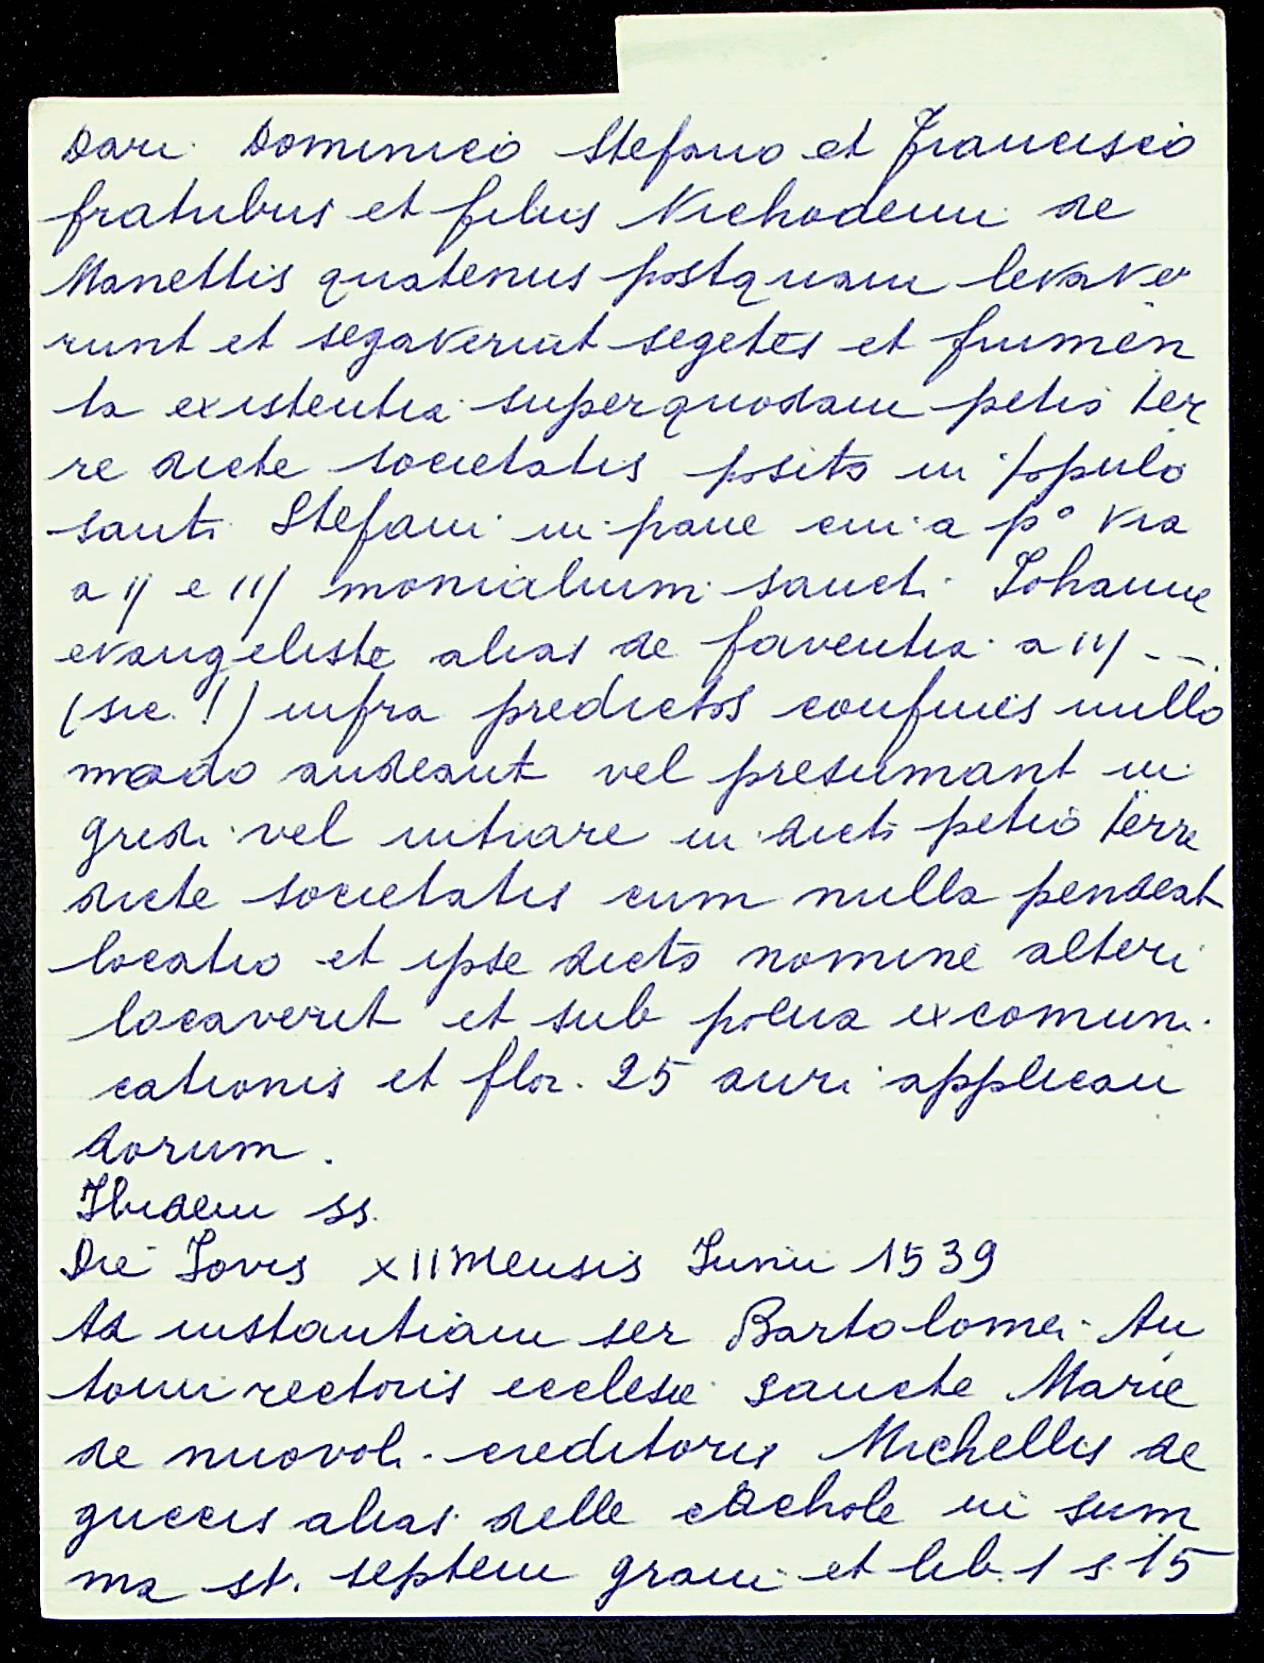 Dari Dominico Stefano et Francisco
fratribus et filiis Nichodemi de
Manettis quatenus postquam levave
runt et segaverunt segetes et frumen
ta existentia superquodam petio ter
re dicte societatis posito in populo
santi Stefani in pane cui a p° via
a ij e iij monialium sancti Johanne
evangeliste alias de faventia a iiij - - .
(sic!) infra predictos confines nullo
modo audeant vel presumant in
gredi vel intrare in dicti petio terre
dicte societatis cum nulla pendeat
locatio et ipse dicto nomine alteri
locaverit et sub pena excomuni
cationis et flor. 25 auri applican
dorum.
Ibidem ss.
Die Jovis XII mensis Junii 1539
Ad instantiam ser Bartolomei An
tonii rectoris ecclesie sancte Marie
de nuovoli creditoris Michellis de
guccis alias delle cachole in sum
ma st. septem grani et lib. 1 s. 15